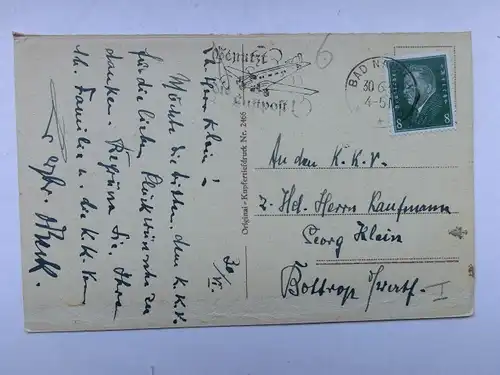 Benutzt
die
Luftpost!
6
BAD NA
30.6.
4-5
DEUTSCHES REICH
8
8
30/VI.
L. Herr Klein!
Möchte Sie bitten, dem K.K.V.
für die lieben Glückwünsche zu
danken. Begrüsse Sie, Ihre
lb. Familie u. die K.K.Ver
Original - Kupfertiefdruck Nr. 2466
An den K.K.V.
z. Hd. Herrn Kaufmann
Georg Klein
Bottrop i/Westf.
I